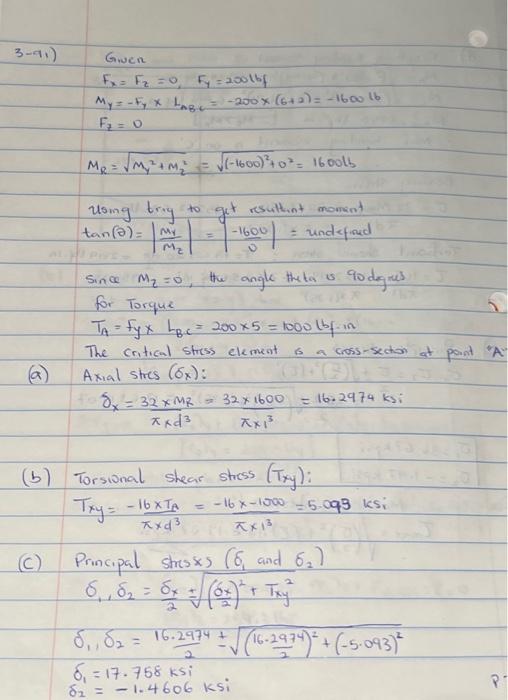 3-91) Given
Fx = Fz = 0, Fy = 200 lbf
My = -Fy x LABC = -200 x (6+2) = -1600 lb
Fz = 0
MR = √My² + Mz² = √(-1600)² + 0² = 1600lb
using trig to get resultant moment
tan(∂) = |My/Mz| = |-1600/0| = undefined
Since Mz = 0, the angle theta is 90 degrees
for Torque
TA = Fy x LBC = 200 x 5 = 1000 lbf.in
The critical stress element is a cross-section at point "A"
(a) Axial stres (δx):
δx = 32 x MR / π x d³ = 32 x 1600 / π x 1³ = 16.2974 ksi
(b) Torsional shear stress (Txy):
Txy = -16 x TA / π x d³ = -16 x -1000 / π x 1³ = 5.093 ksi
(C) Principal stresses (δ1 and δ2)
δ1, δ2 = δx/2 ± √(δx/2)² + Txy²
δ1, δ2 = 16.2974/2 ± √(16.2974/2)² + (-5.093)²
δ1 = 17.758 ksi
δ2 = -1.4606 ksi
P